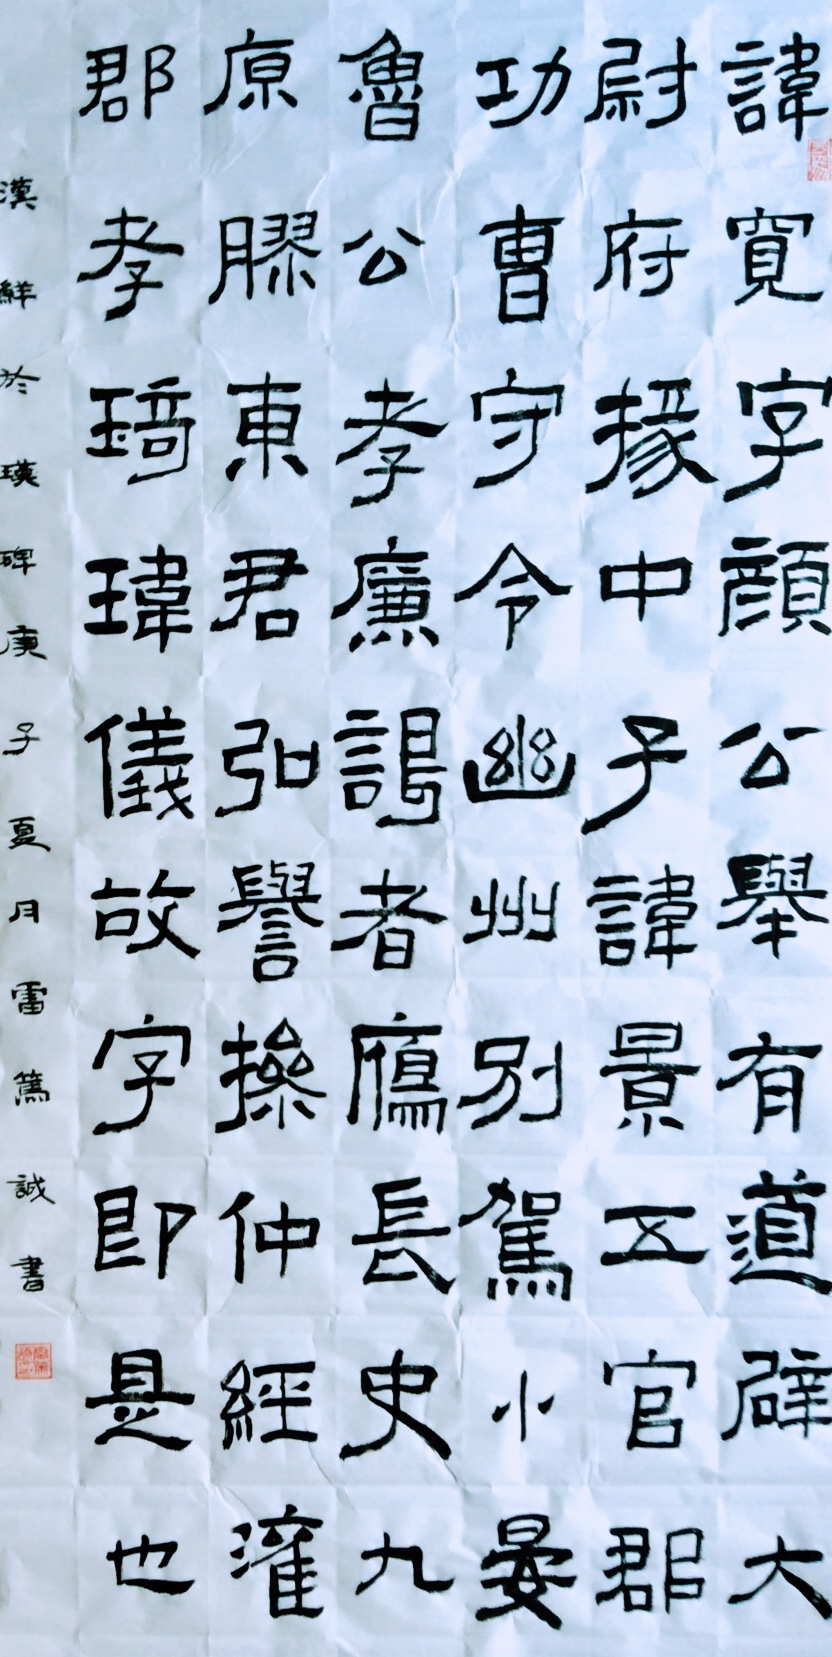 諱寬字顔公舉有道辟大
尉府掾中子諱景五官郡
功曹守令幽州別駕小晏
魯公孝廉謁者鴈長史九
原膠東君弘譽操仲經灌
郡孝琦瑋儀故字即是也
漢鮮於璜碑庚子夏月雷篤誠書